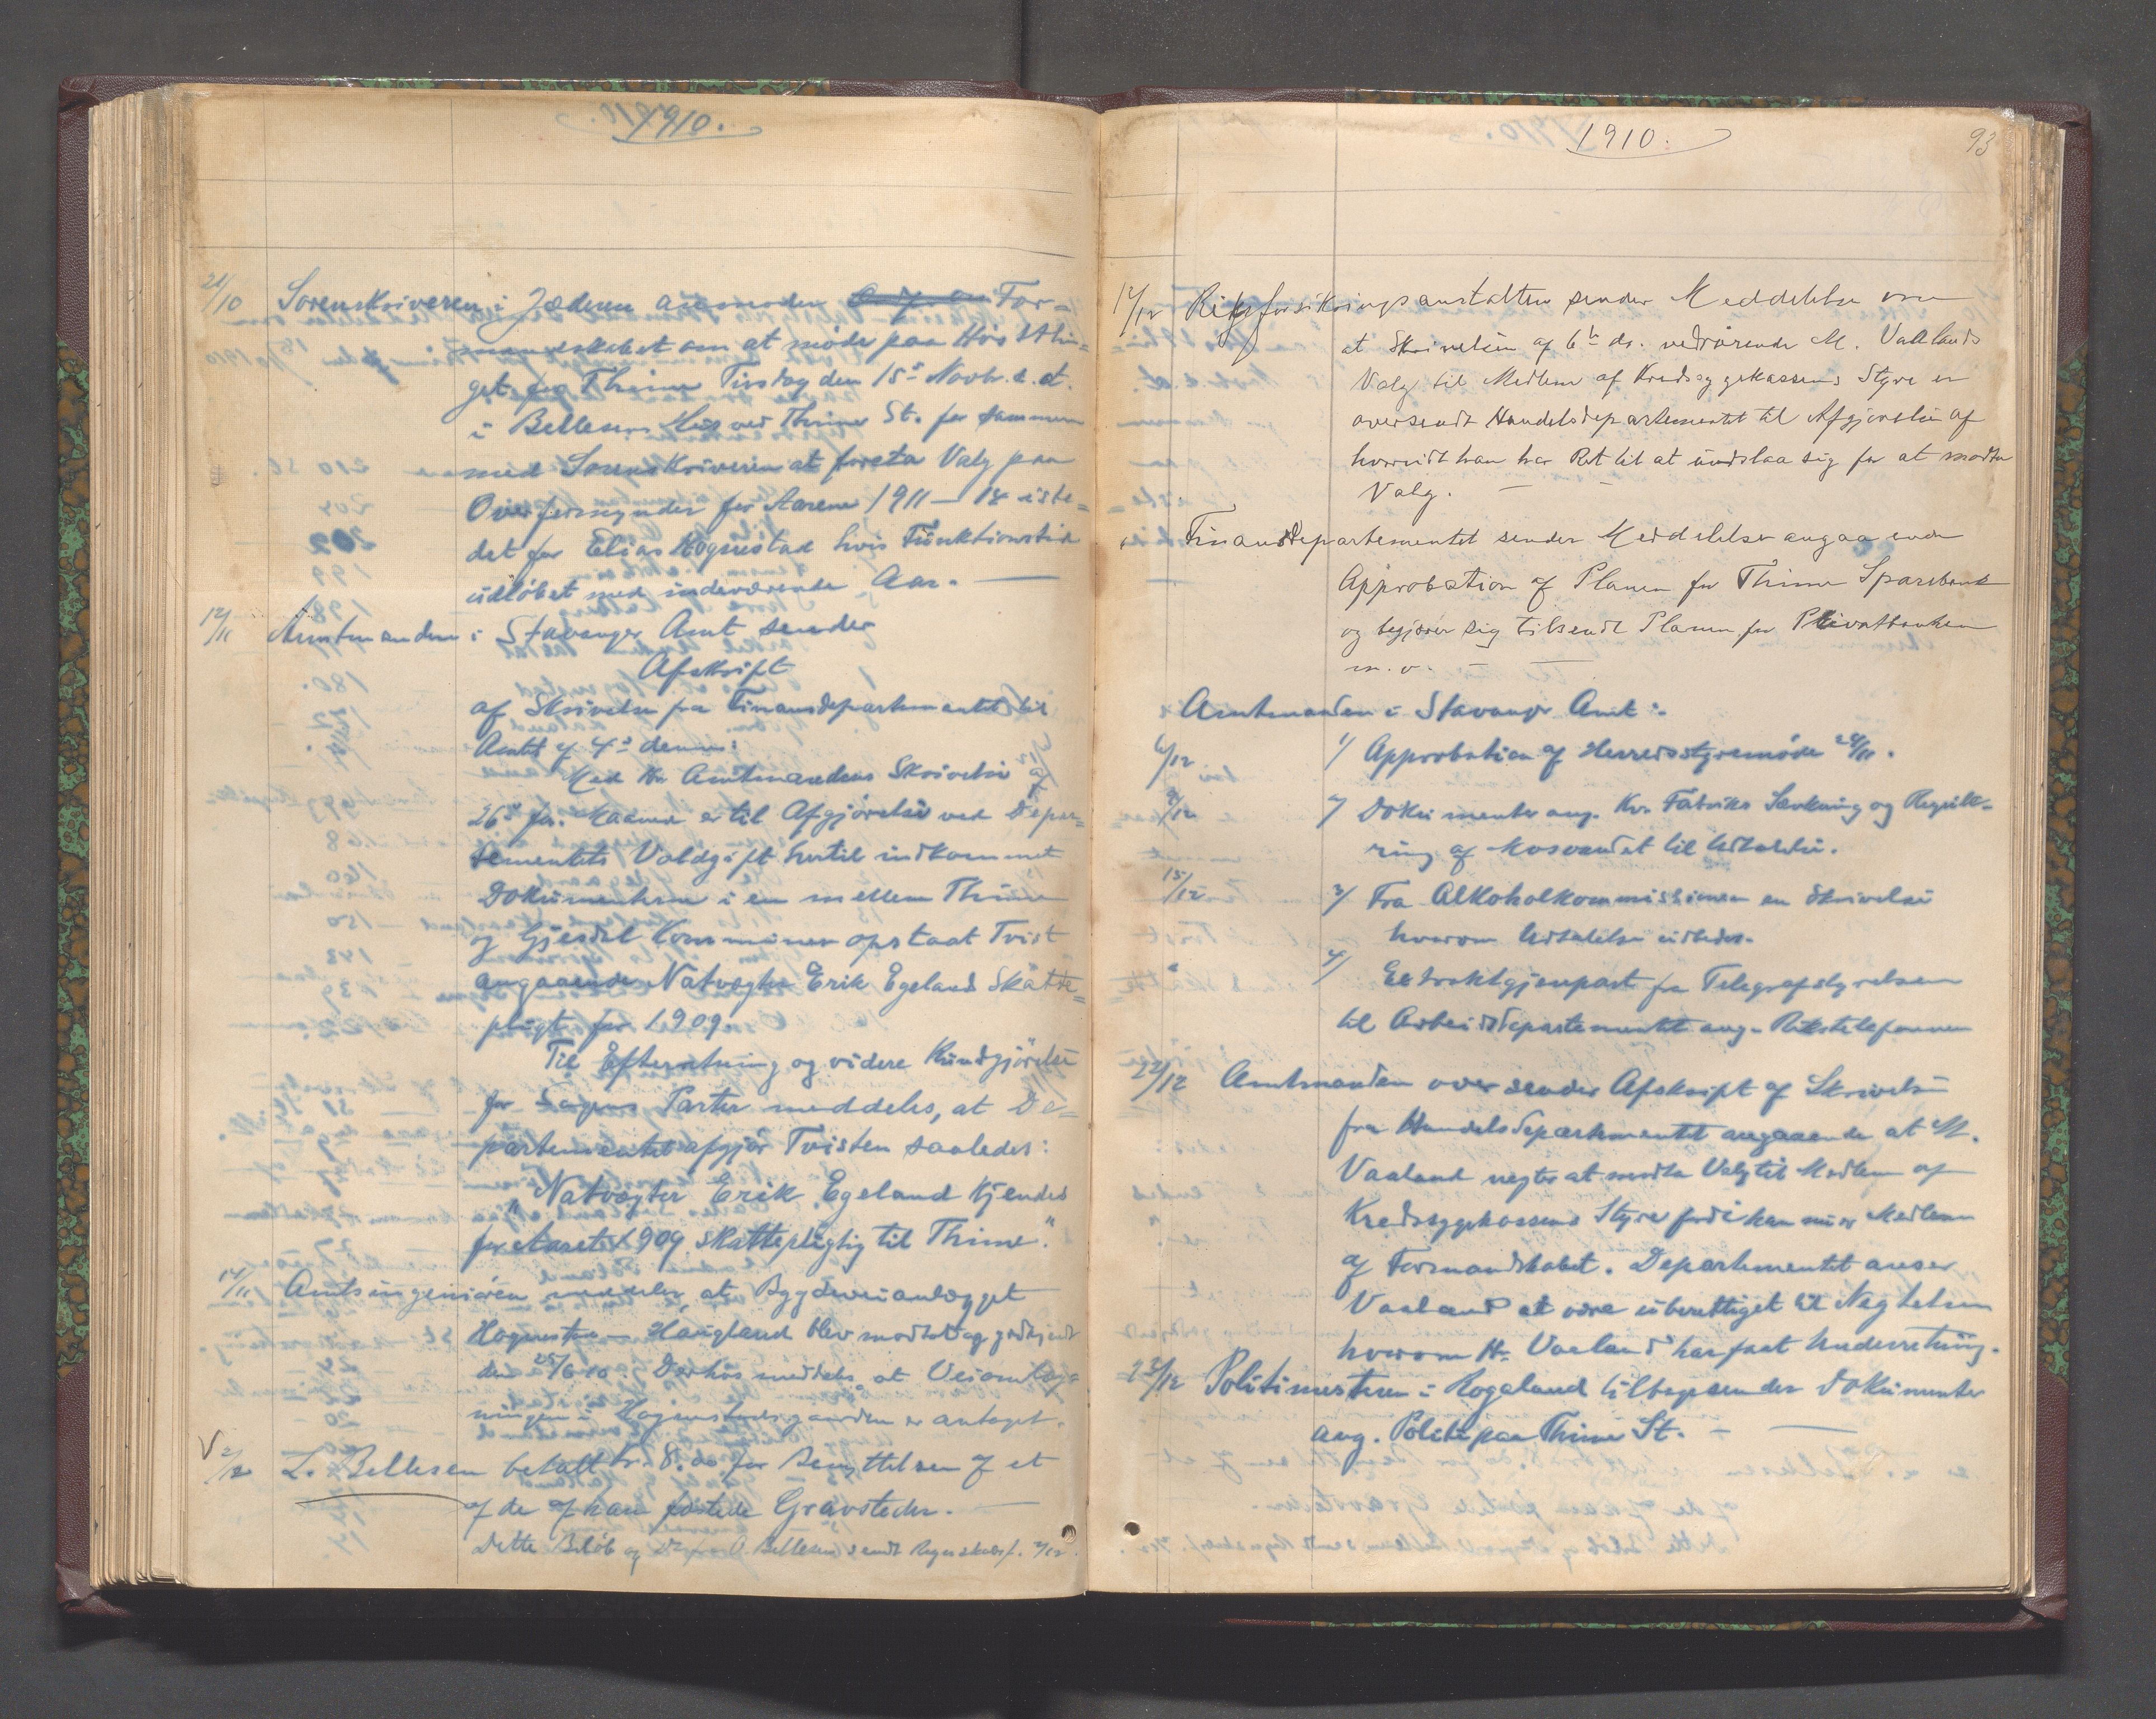 1910.
21/10 Sorenskriveren i Jæderen anmoder For-
mandskabet om at møde paa Høstthin-
get for Thime Tirsdag den 15de Novbr. d. A.
i Bellesens Hus ved Thime St. for sammen
med Sorenskriveren at foreta Valg paa
Overformynder for Aarene 1911 – 14 iste-
det for Elias Hognestad hvis Funktionstid
udløbet med indeværende Aar. —
12/11 Amtmanden i Stavanger Amt sender
Afskrift
af Skrivelse fra Finansdepartementet til
Amtet af 4de dennes:
Med Hr. Amtmandens Skrivelse af
26de f. Maaned er til Afgjørelse ved Depar-
tementets Voldgift hertil indkommet
Dokumenterne i en mellem Thime
og Gjesdal Kommuner opstaat Tvist
angaaende Natvægter Erik Egeland Skatte-
pligt for 1909.
Til Efterretning og videre Kundgjørelse
for Sagens Parter meddeles, at De-
partementet afgjør Tvisten saaledes:
"Natvægter Erik Egeland kjendes
for Aaret 1909 skattepligtig til Thime."
14/11 Amtsingeniøren meddeler, at Bygdeveianlægget
Hognestad – Haugland blev modtat og godkjendt
den 25/6 10. Derhos meddeles at Veiomlæg-
ningen i Hognestads gaarden er antaget.
V 2/12 L. Bellesen betalt kr. 8.00 for Benyttelsen af et
af de af ham fæstede Gravsteder. —
Dette Beløb og Bellesen sendt Regnskabsf. 2/12.
1910.
93
12/12 Riksforsikringsanstalten sender Meddelelse om
at Skrivelsen af 6te ds. vedrørende M. Vaalands
Valg til Medlem af Kredssygekassens Styre er
oversendt Handelsdepartementet til Afgjørelse af
hvorvidt han har Ret til at undslaa sig for at modta
Valg. — —
" Finansdepartementet sender Meddelelse angaaende
Approbation af Planen for Thime Sparebank
og begjærer sig tilsendt Planen for Privatbanken
m. v. — —
Amtmanden i Stavanger Amt:
6/12 1/ Approbation af Herredsstyremøde 28/11.
9/12 2/ Dokumenter ang. Kv. Fabriks Sænkning og Regule-
ring af Mosvandet til Udtalelse.
15/12 3/ Fra Alkoholkommissionen en Skrivelse
hvorom Udtalelse udbedes.
" 4/ Extraktgjenpart fra Telegrafstyrelsen
til Arbeidsdepartementet ang. Rikstelefonen
22/12 Amtmanden oversender Afskrift af Skrivelse
fra Handelsdepartementet angaaende at M.
Vaaland negter at modta Valg til Medlem af
Kredssygekassens Styre fordi han nu er Medlem
af Formandskabet. Departementet anser
Vaaland at være uberettiget til Negtelsen
hvorom Hr. Vaaland har faat Underretning.
23/12 Politimesteren i Rogaland tilbagesender Dokumenter
ang. Politi paa Thime St. — —